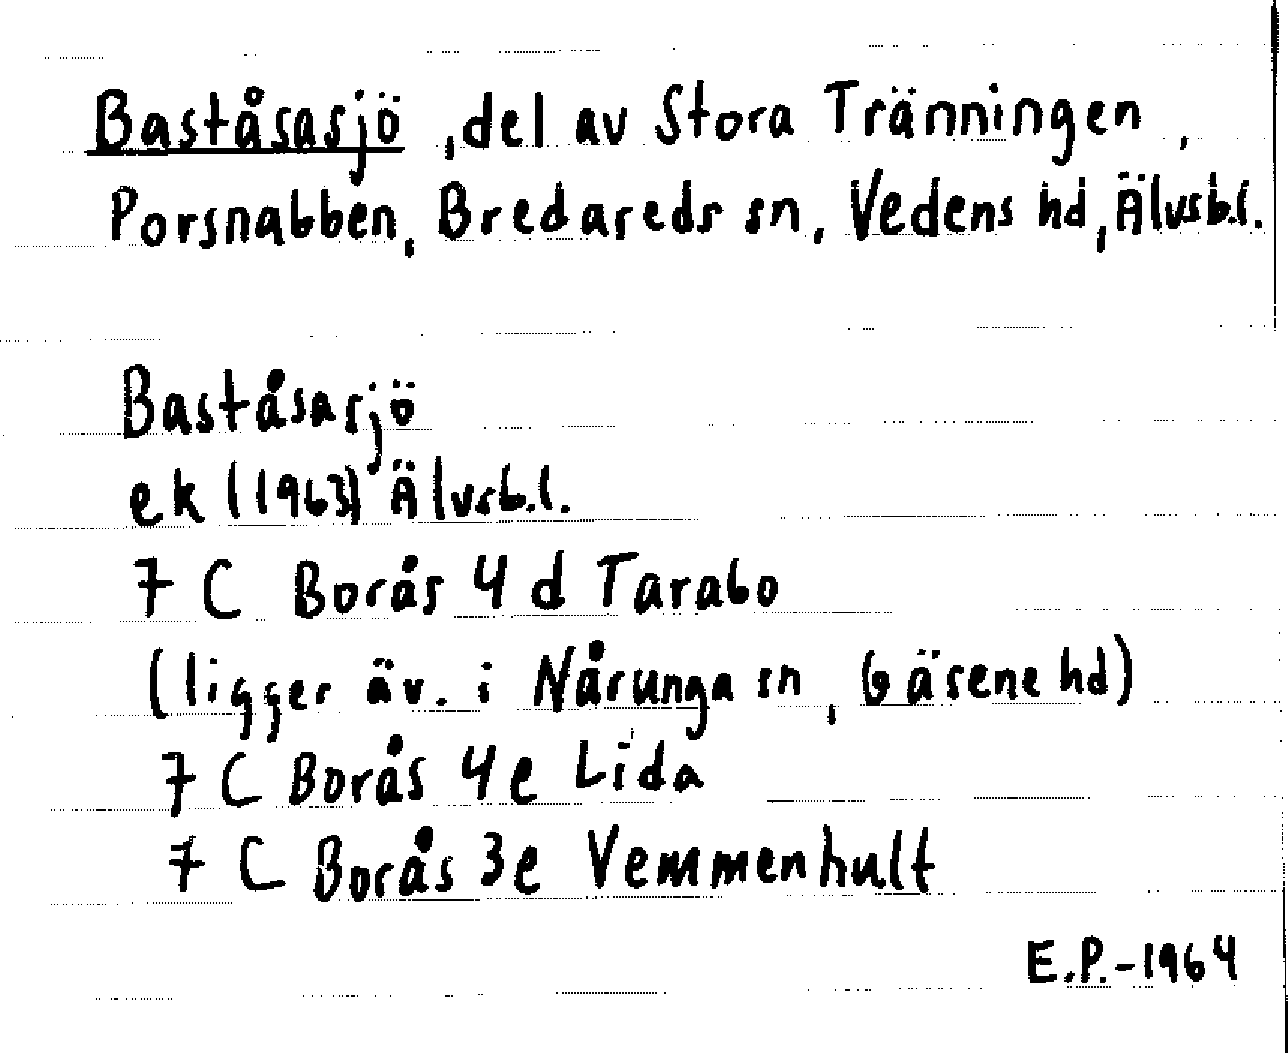 Baståsasjö, del av Stora Tränningen,
Porsnabben, Bredareds sn, Vedens hd, Älvsb.l.
Baståsasjö
ek (1963) Älvsb.l.
7 C Borås 4 d Tarabo
(ligger äv. i Nårunga sn, Gäsene hd)
7 C Borås 4e Lida
7 C Borås 3e Vemmenhult
E.P.-1964